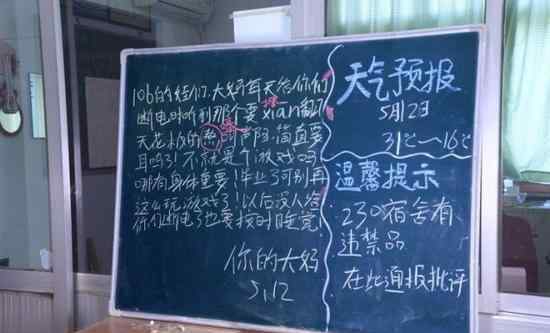 106的娃们,大妈每天给你们
断电时听到那个要掀xian翻
天花板的 声阵阵,简直要
耳鸣了!不就是个游戏吗?
哪有身体重要!毕业了可别再
这么玩游戏了!以后没人给
你们断电了也要按时睡觉
你的大妈
5.12
天气预报
5月12日
31℃~16℃
温馨提示
230宿舍有
违禁品
在此通报批评